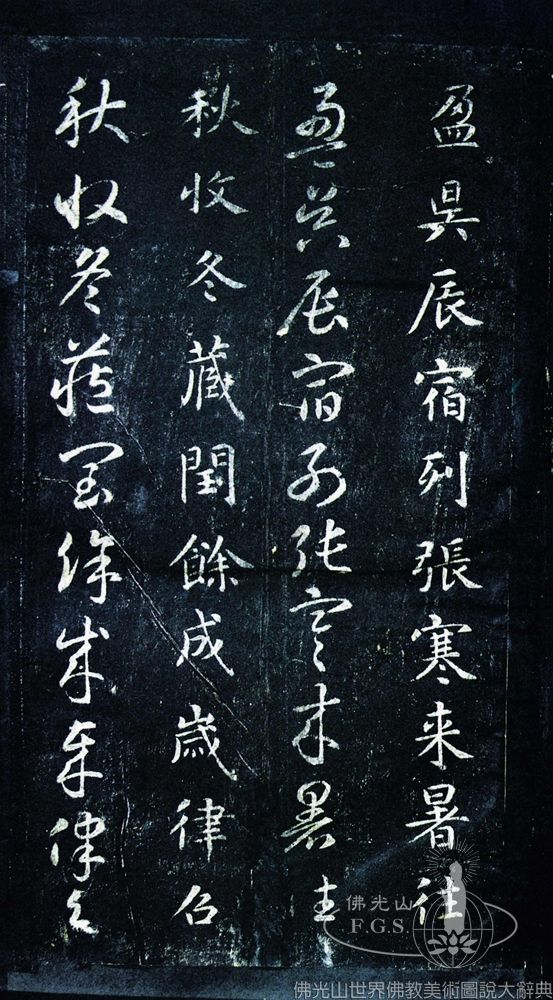 盈昃辰宿列張寒来暑往
盈昃辰宿列張寒来暑往
秋收冬藏閏餘成歲律召
秋收冬藏閏餘成歲律召
佛光山
F.G.S.
佛光山世界佛教美術圖說大辭典